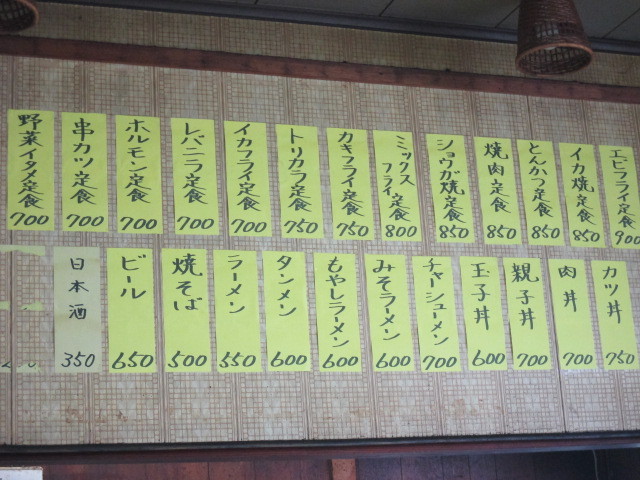 エビフライ定食 900
イカ焼定食 850
とんかつ定食 850
焼肉定食 850
ショウガ焼定食 850
ミックスフライ定食 800
カキフライ定食 750
トリカラ定食 750
イカフライ定食 700
レバニラ定食 700
ホルモン定食 700
串カツ定食 700
野菜イタメ定食 700
カツ丼 750
肉丼 700
親子丼 700
玉子丼 600
チャーシューメン 700
みそラーメン 600
もやしラーメン 600
タンメン 600
ラーメン 550
焼そば 500
ビール 650
日本酒 350